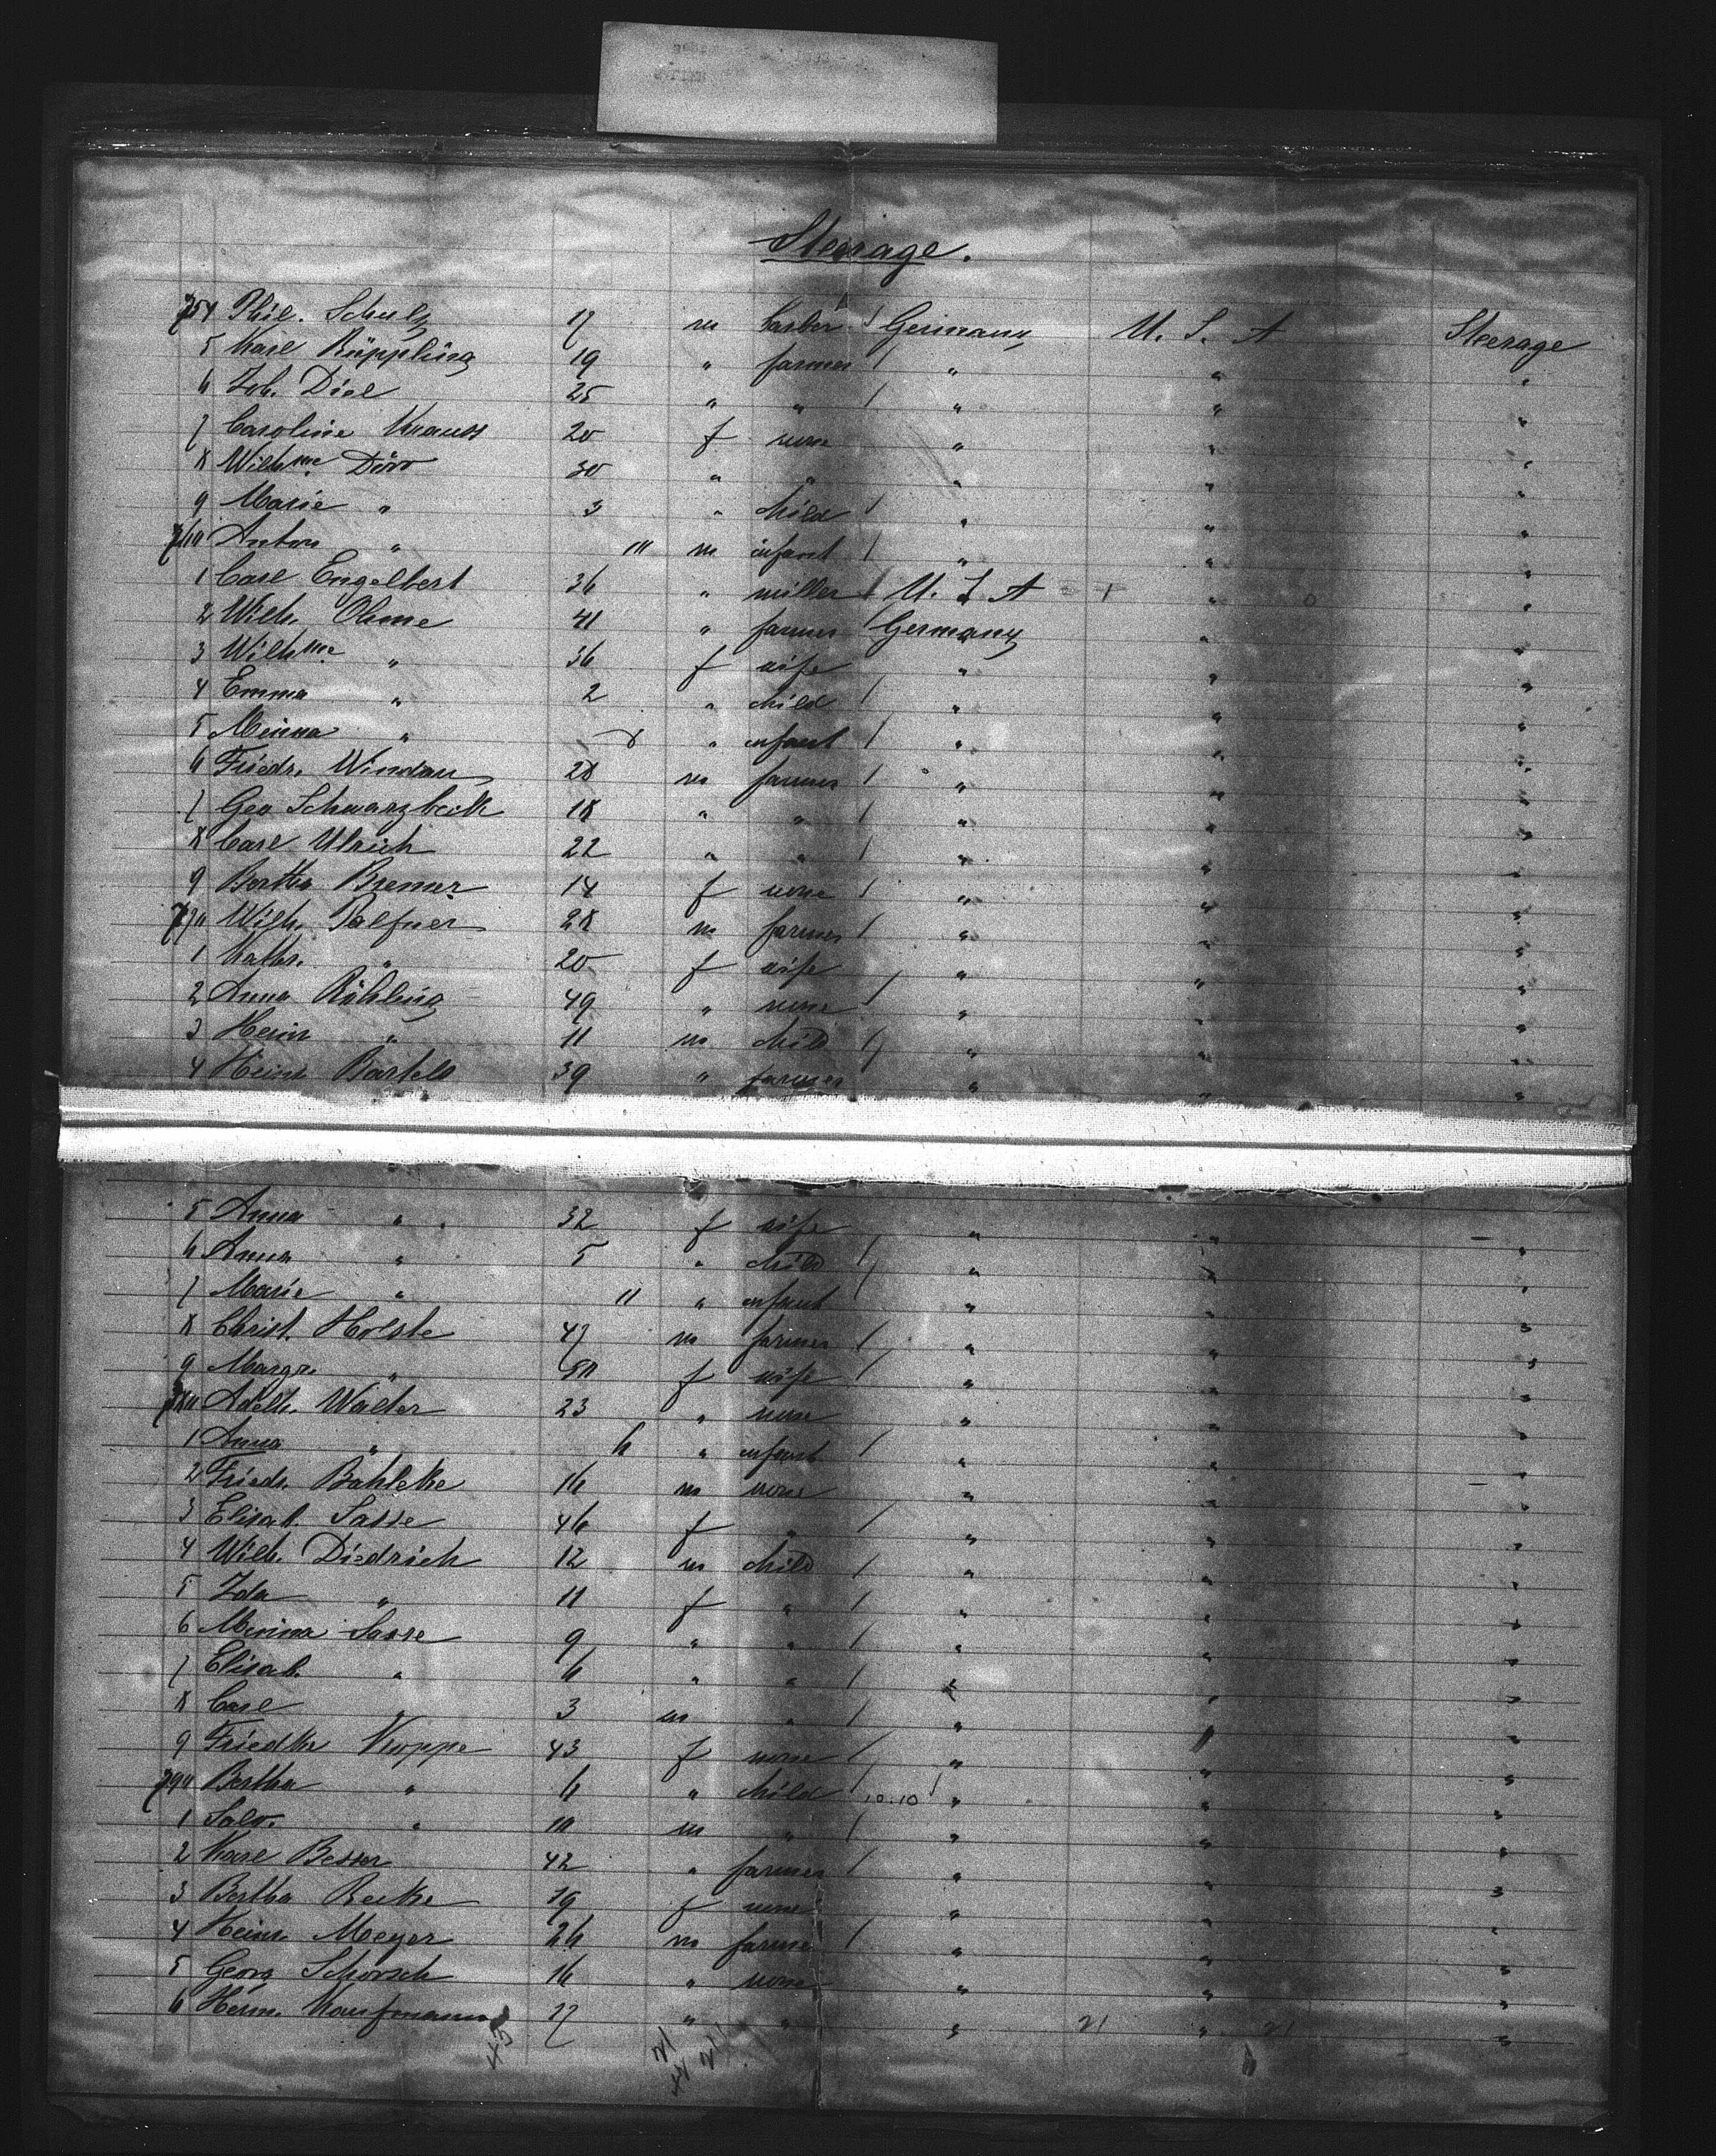 Steerage.
754 Phil. Schulz 17 m barber / Germany U. S. A Steerage
5 Karl Rüppling 19 " farmer / " " "
6 Joh. Diel 25 " " / " " "
7 Caroline Krauss 20 f none " " "
8 Wilhme Dörr 30 " " " " "
9 Marie " 3 " child / " " "
760 Anton " 10 m infant / " " "
1 Carl Engelbert 36 " miller / U. S. A "  "
2 Wilh. Ohme 41 " farmer / Germany " "
3 Wilhme " 36 f wife " " "
4 Emma " 2 " child / " " "
5 Minna " 8 " infant / " " "
6 Friedr. Windau 28 m farmer / " " "
7 Geo Schwarzbeck 18 " " / " " "
8 Carl Ulrich 22 " " / " " "
9 Bertha Bremer 14 f none / " " "
770 Wilh. Palfner 28 m farmer / " " "
1 Kathr. " 20 f wife " " "
2 Anna Röhling 49 " none / " " "
3 Heinr " 11 m child / " " "
4 Heinr Bartels 39 " farmer " " "
5 Anna " 32 f wife " " "
6 Anna " 5 " child / " " "
7 Marie " 11 " infant / " " "
8 Christ. Holste 47 m farmer / " " "
9 Margr. " 50 f wife / " " "
780 Adelh. Walter 23 " none " " "
1 Anna " 6 " infant / " " "
2 Friedr. Bahleke 16 m none " " "
3 Elisab. Sasse 46 f " / " " "
4 Wilh. Diedrich 12 m child / " " "
5 Ida " 11 f " / " " "
6 Minna Sasse 9 " " / " " "
7 Elisab. " 6 " " / " " "
8 Carl " 3 m " / " " "
9 Friedke Koppe 43 f none / " " "
790 Bertha " 6 " child / 10.10 " " "
1 Salo. " 10 m " / " " "
2 Karl Besser 42 " farmer / " " "
3 Bertha Recke 19 f none " " "
4 Heinr. Meyer 26 m farmer / " " "
5 Georg Schorsch 16 " none " " "
6 Herm. Kaufmann 17 " " " 21 " 21 "
43 21 44 21